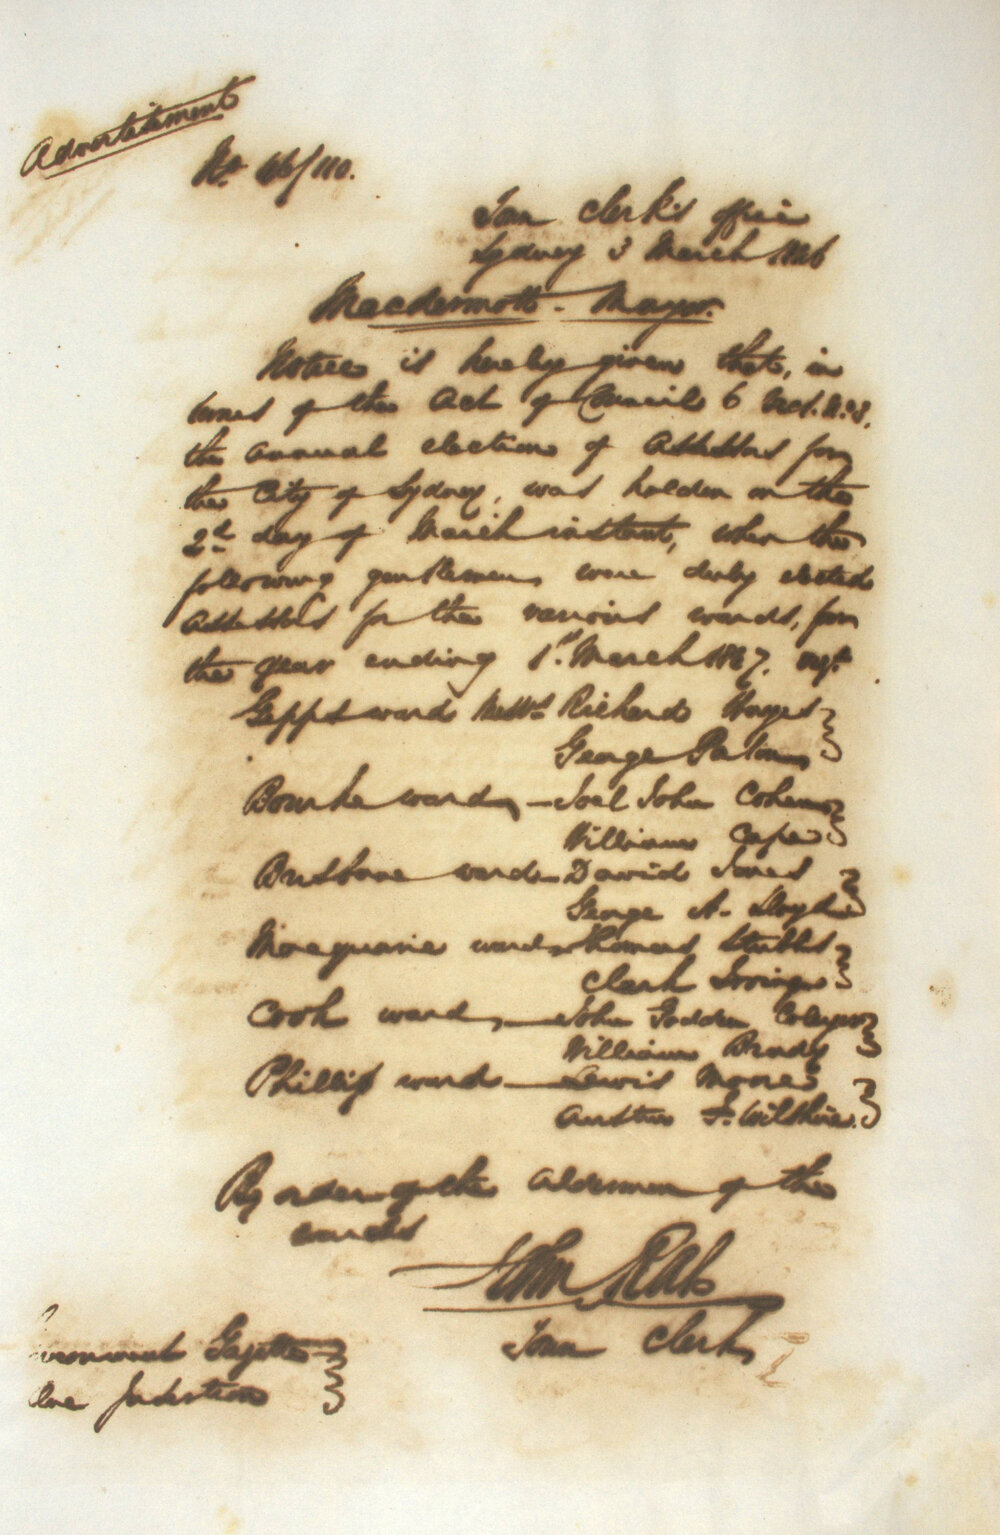 Advertisement
No 46/110.
Town Clerk's Office
Sydney 3 March 1846
Macdermott - Mayor.
Notice is hereby given that, in
terms of the Act of Council 6 Vict. No. 3,
the annual election of Assessors for
the City of Sydney, was holden on the
2d day of March instant, when the
following gentlemen were duly elected
Assessors for the various wards, for
the year ending 1st March 1847. vizt.
Gipps ward Messrs Richard Hayes
George Paton
Bourke ward - Joel John Cohen
William Cape
Brisbane ward - David Jones
George A. Lloyd
Macquarie ward - Thomas Stubbs
Clark Irving
Cook ward - John Godden Colyer
William Brady
Phillip ward - Lewis Moore
Austin F. Wilshire
By order of the Aldermen of the
wards
John Rae
Town Clerk
Government Gazette
One Insertion